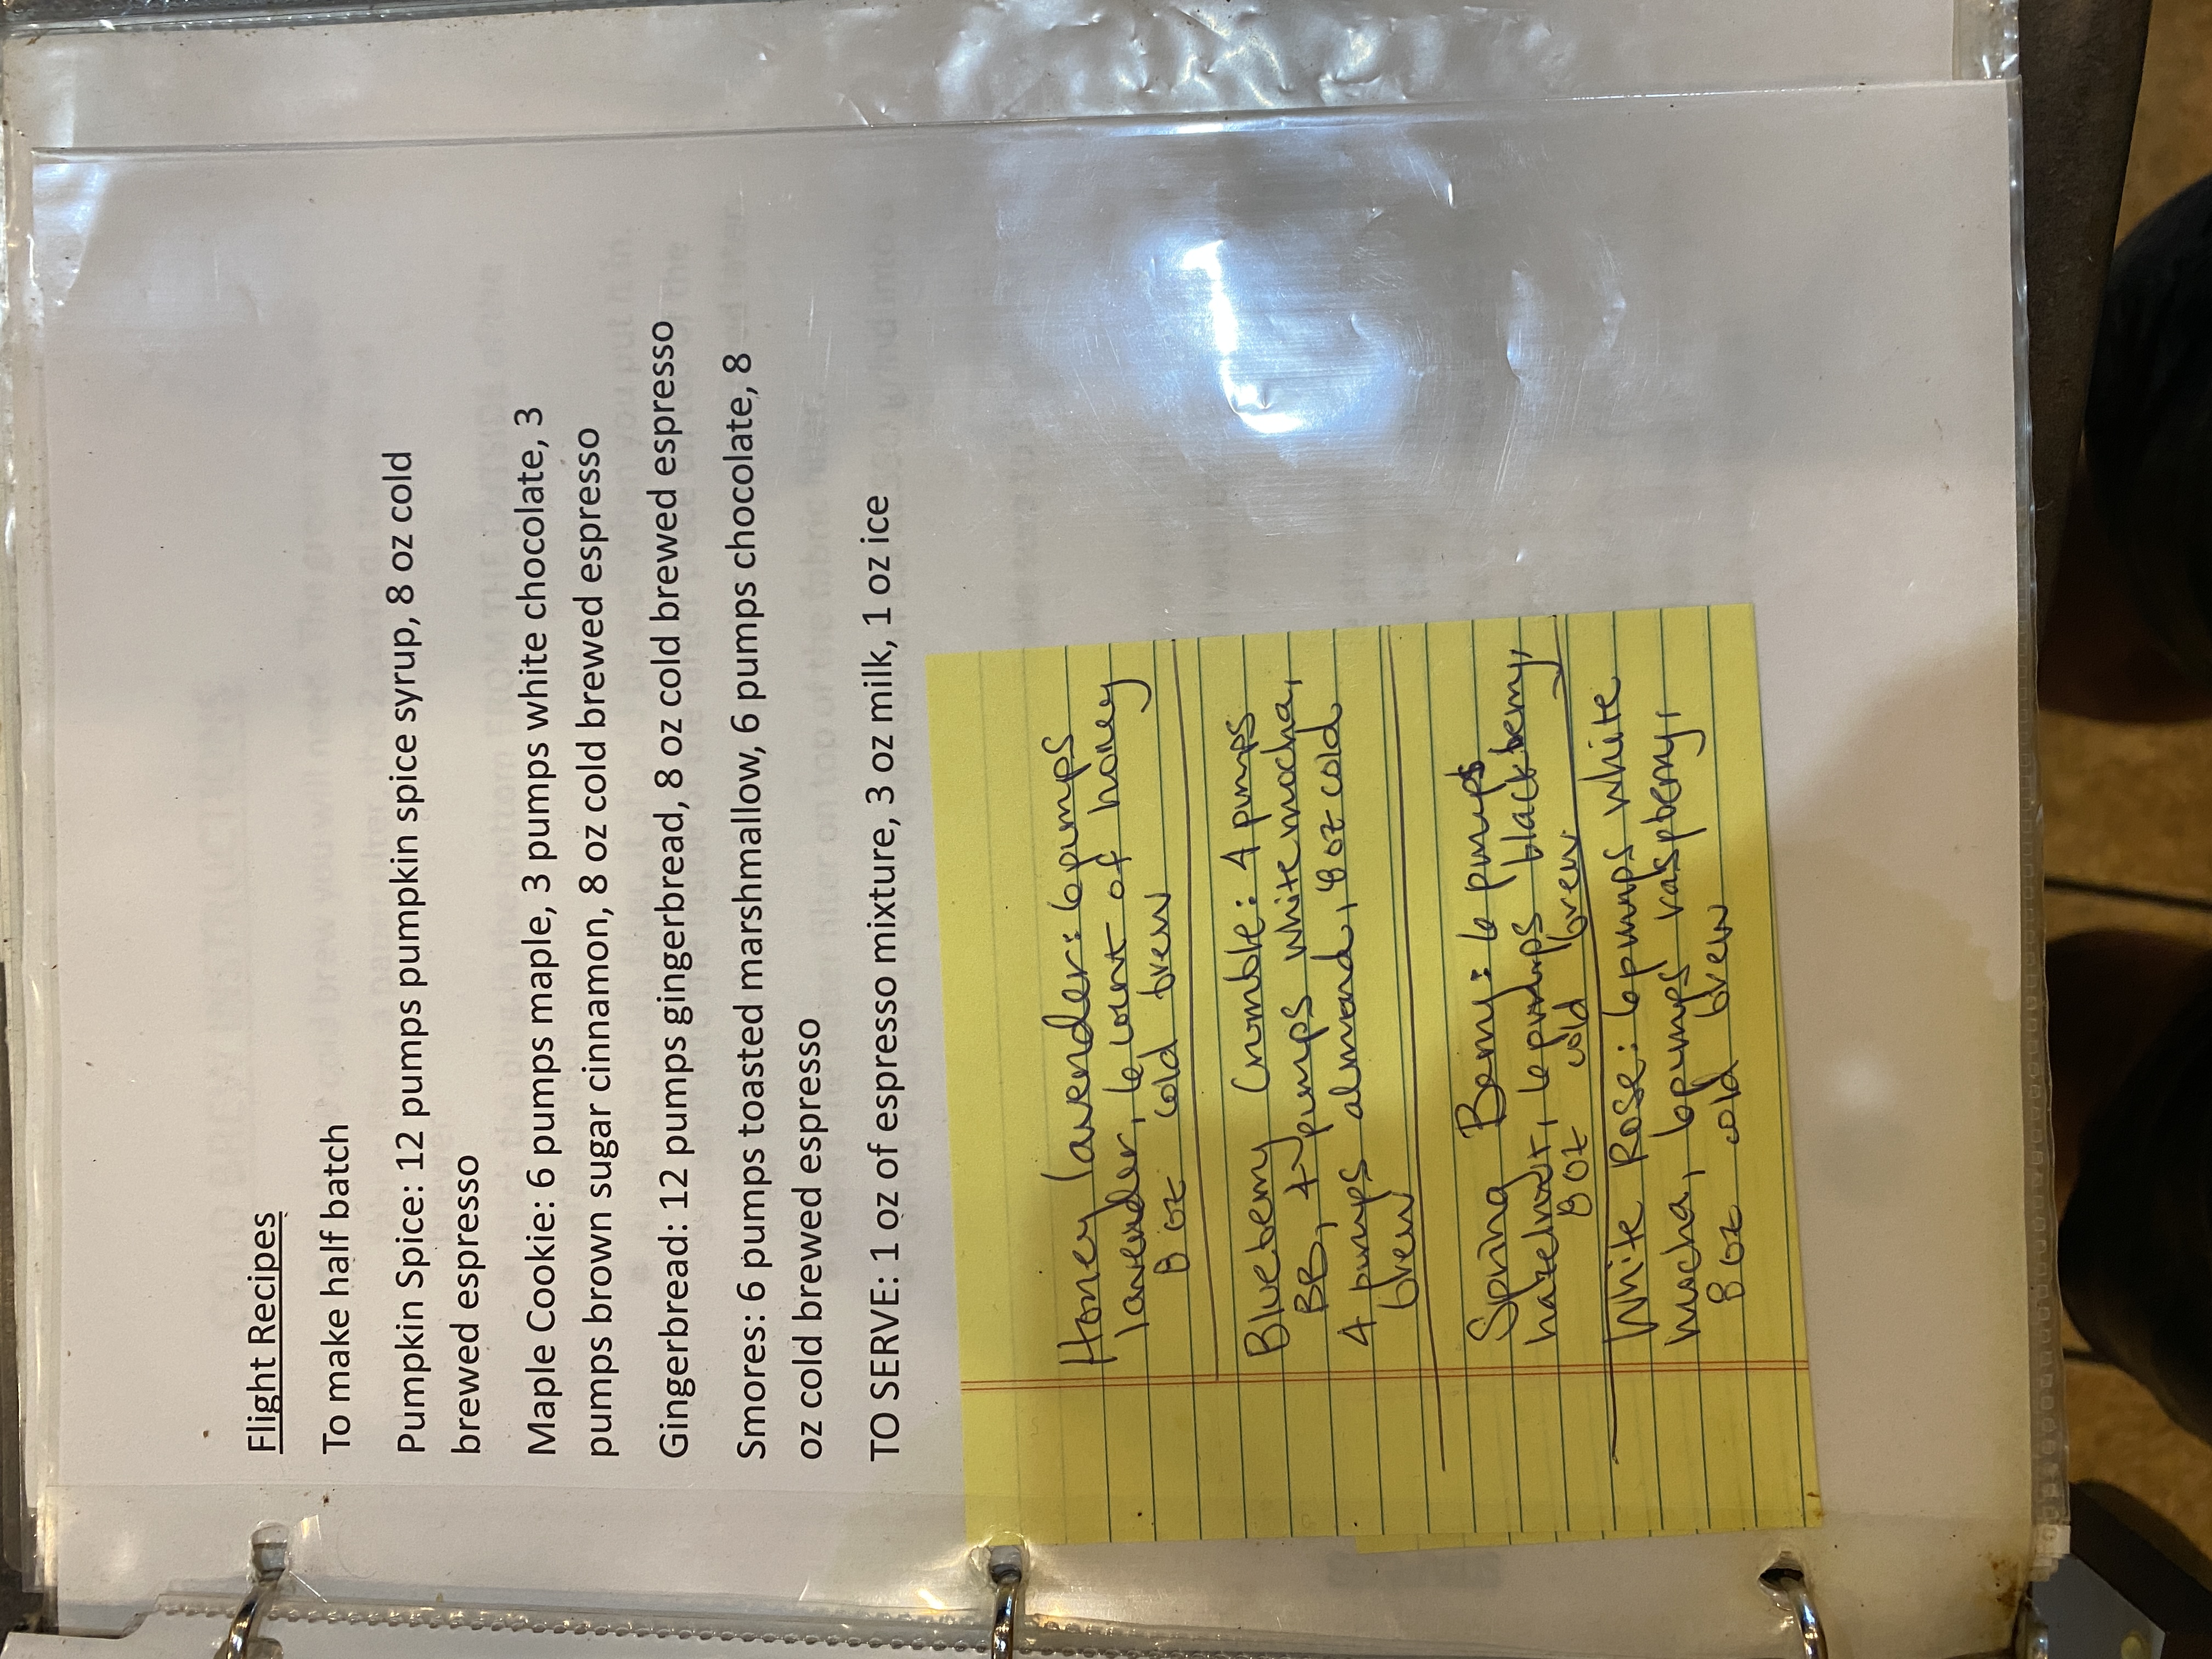 Flight Recipes
To make half batch
Pumpkin Spice: 12 pumps pumpkin spice syrup, 8 oz cold
brewed espresso
Maple Cookie: 6 pumps maple, 3 pumps white chocolate, 3
pumps brown sugar cinnamon, 8 oz cold brewed espresso
Gingerbread: 12 pumps gingerbread, 8 oz cold brewed espresso
Smores: 6 pumps toasted marshmallow, 6 pumps chocolate, 8
oz cold brewed espresso
TO SERVE: 1 oz of espresso mixture, 3 oz milk, 1 oz ice
Honey lavender: 6 pumps
lavender, 6 count of honey
8 oz cold brew
Blueberry Crumble: 4 pumps
BB, 4 pumps white mocha,
4 pumps almond, 8 oz cold
brew
Spring Berry: 6 pumps
hazelnut, 6 pumps blackberry,
8 oz cold brew
White Rose: 6 pumps white
mocha, 6 pumps raspberry,
8 oz cold brew